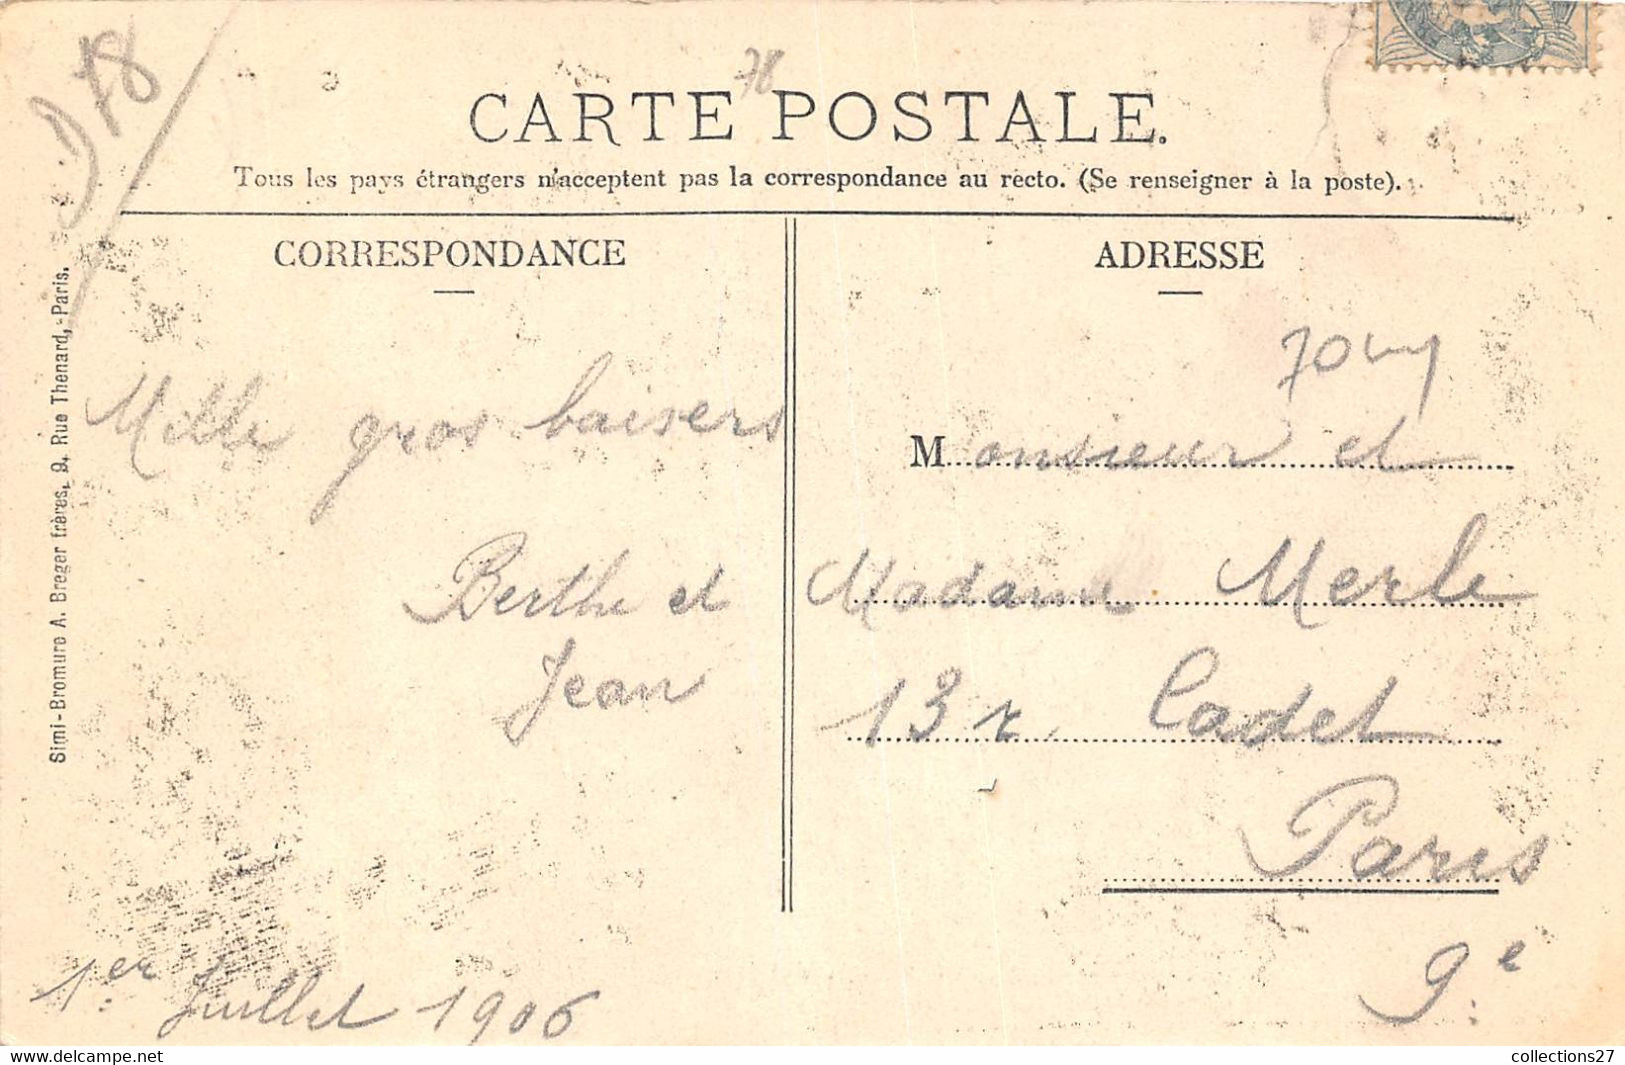 D 78
78
CARTE POSTALE.
Tous les pays étrangers n'acceptent pas la correspondance au recto. (Se renseigner à la poste).
CORRESPONDANCE
Mille gros baisers
Berthe et
Jean
1er Juillet 1906
ADRESSE
Jouy
Monsieur et
Madame Merle
13 r. Cadet
Paris
9.e
Simi-Bromure A. Breger frères, 9, Rue Thenard,-Paris.
www.delcampe.net
collections27